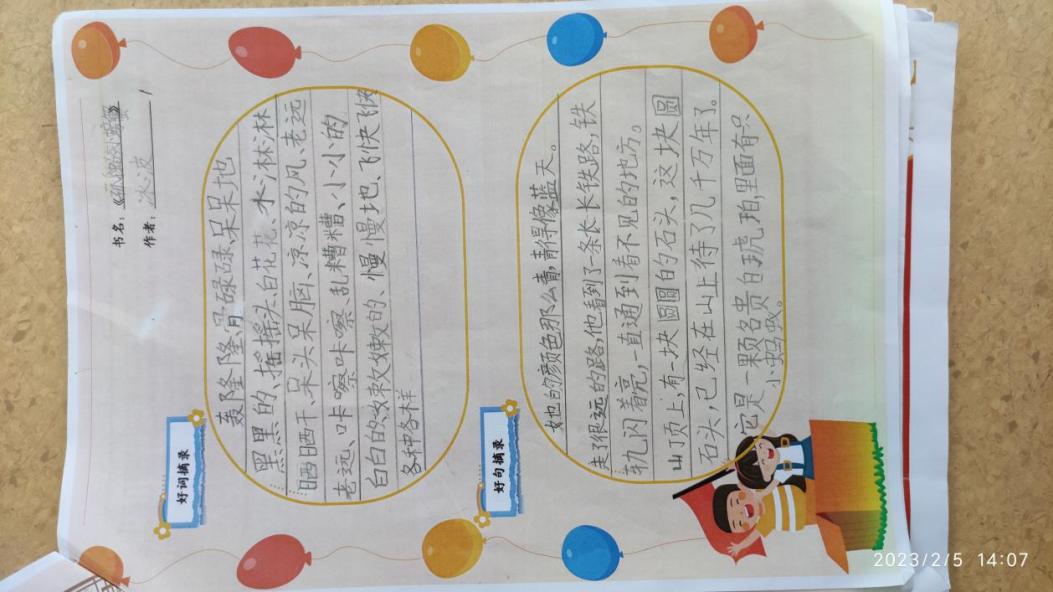 书名：
作者：冰波
好词摘录
轰隆隆、骨碌碌、呆呆地
黑黑的、摇摇头、白花花、水淋淋
晒晒干、呆头呆脑、凉凉的风、老远
老远、咔嚓咔嚓、乱糟糟、小小的
白白嫩嫩的、慢慢地、飞快飞快
各种各样
好句摘录
她的颜色那么青，青得像蓝天。
走了很远的路，他看到了一条长长铁路，铁
轨闪着亮，一直通到看不见的地方。
山丁页上，有一块圆圆的石头，这块圆
石头，已经在山上待了几千万年了。
它是一颗名贵的琥珀，里面有只
小蚂蚁。
2023/2/5 14:07